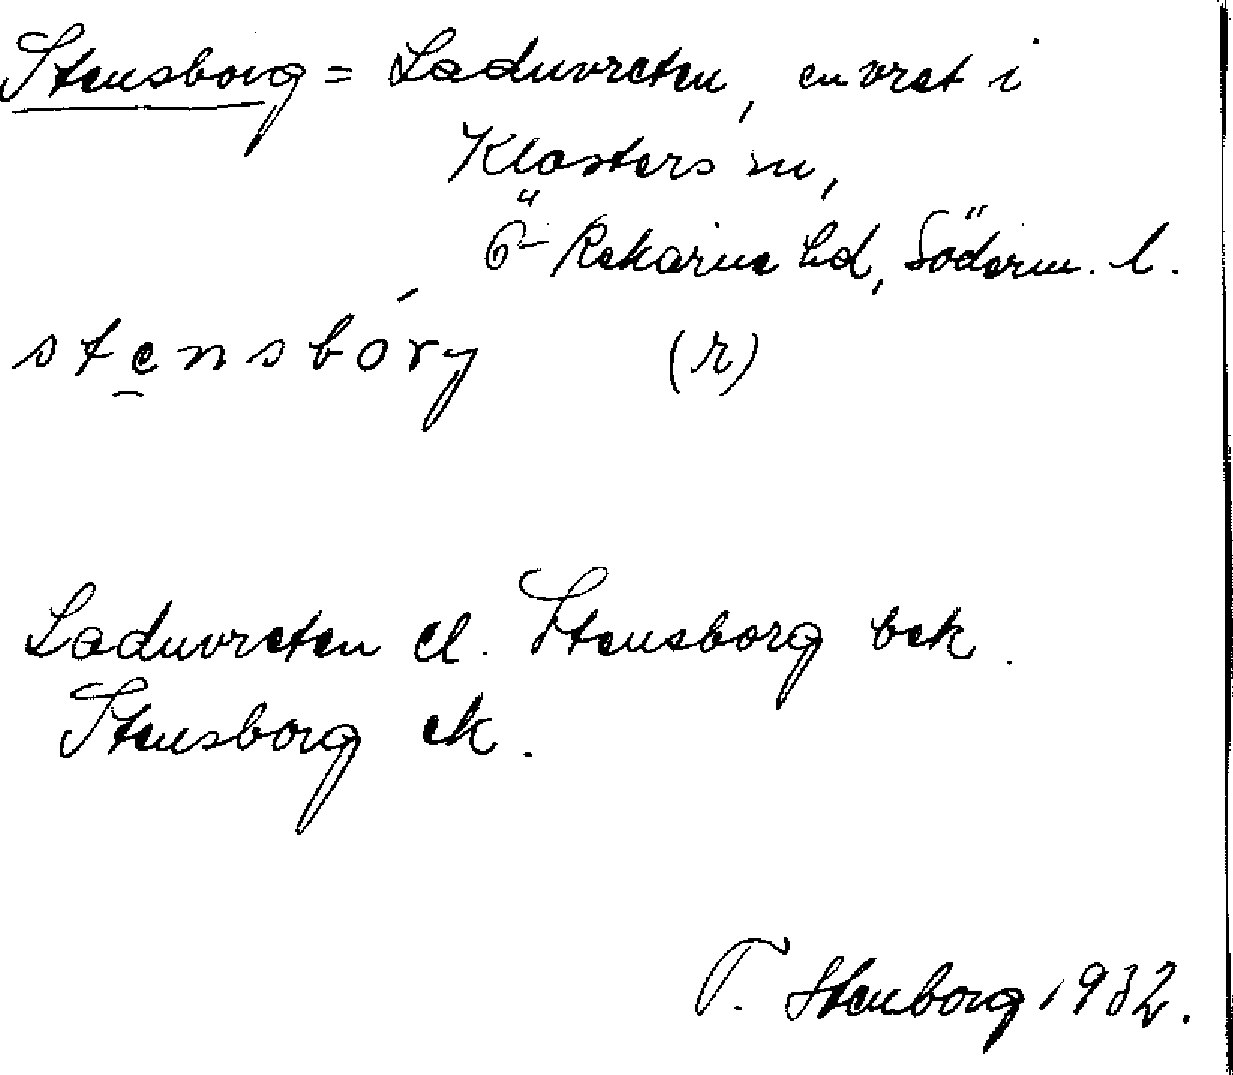 Stensborg = Laduvreten, en vret i
Klosters sn,
Ö- Rekarne hd, Söderm. l.
stensbórj (r)
Laduvreten el. Stensborg bek.
Stensborg ek.
T. Stenborg 1932.